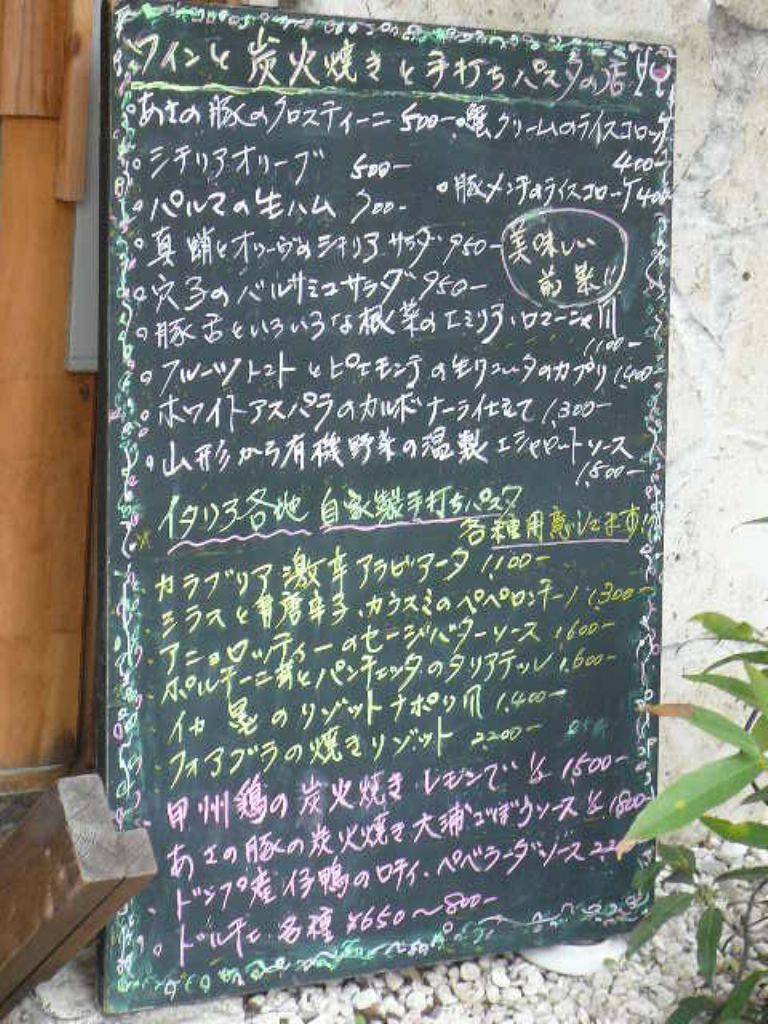 ワインと炭火焼きと手打ちパスタの店
あさの豚のクロスティーニ 500- 。蟹クリームのライスコロッケ
400-
。シチリアオリーブ 500-
。豚メンチのライスコロッケ 400
。パルマの生ハム 700-
。真蛸とオリーヴのシチリアサラダ 950-
美味しい
前菜!!
。穴子のバルサミコサラダ 950-
。豚舌といろいろな根菜のエミリア・ロマーニャ風
1,100-
。フルーツトマトとピエモンテの生リコッタのカプリ 1,400
。ホワイトアスパラのカルボナーラ仕立て 1,300-
。山形から有機野菜の温製 エシャロットソース
1,800-
イタリア各地 自家製手打ちパスタ
各種用意してます!!
カラブリア激辛アラビアータ 1,100-
シラスと青唐辛子、カラスミのペペロンチーノ 1,300-
アニョロッティーのセージバターソース 1,600-
ポルチーニ茸とパンチェッタのタリアテッレ 1,600-
イカ墨のリゾットナポリ風 1,400-
フォアグラの焼きリゾット 2,200-
甲州鶏の炭火焼き レモンで ¥1,500-
あさの豚の炭火焼き 大浦ごぼうソース ¥1,800-
ドンブ産 仔鴨のロティ・ペペラーダソース
ドルチェ 各種 ¥650〜800-